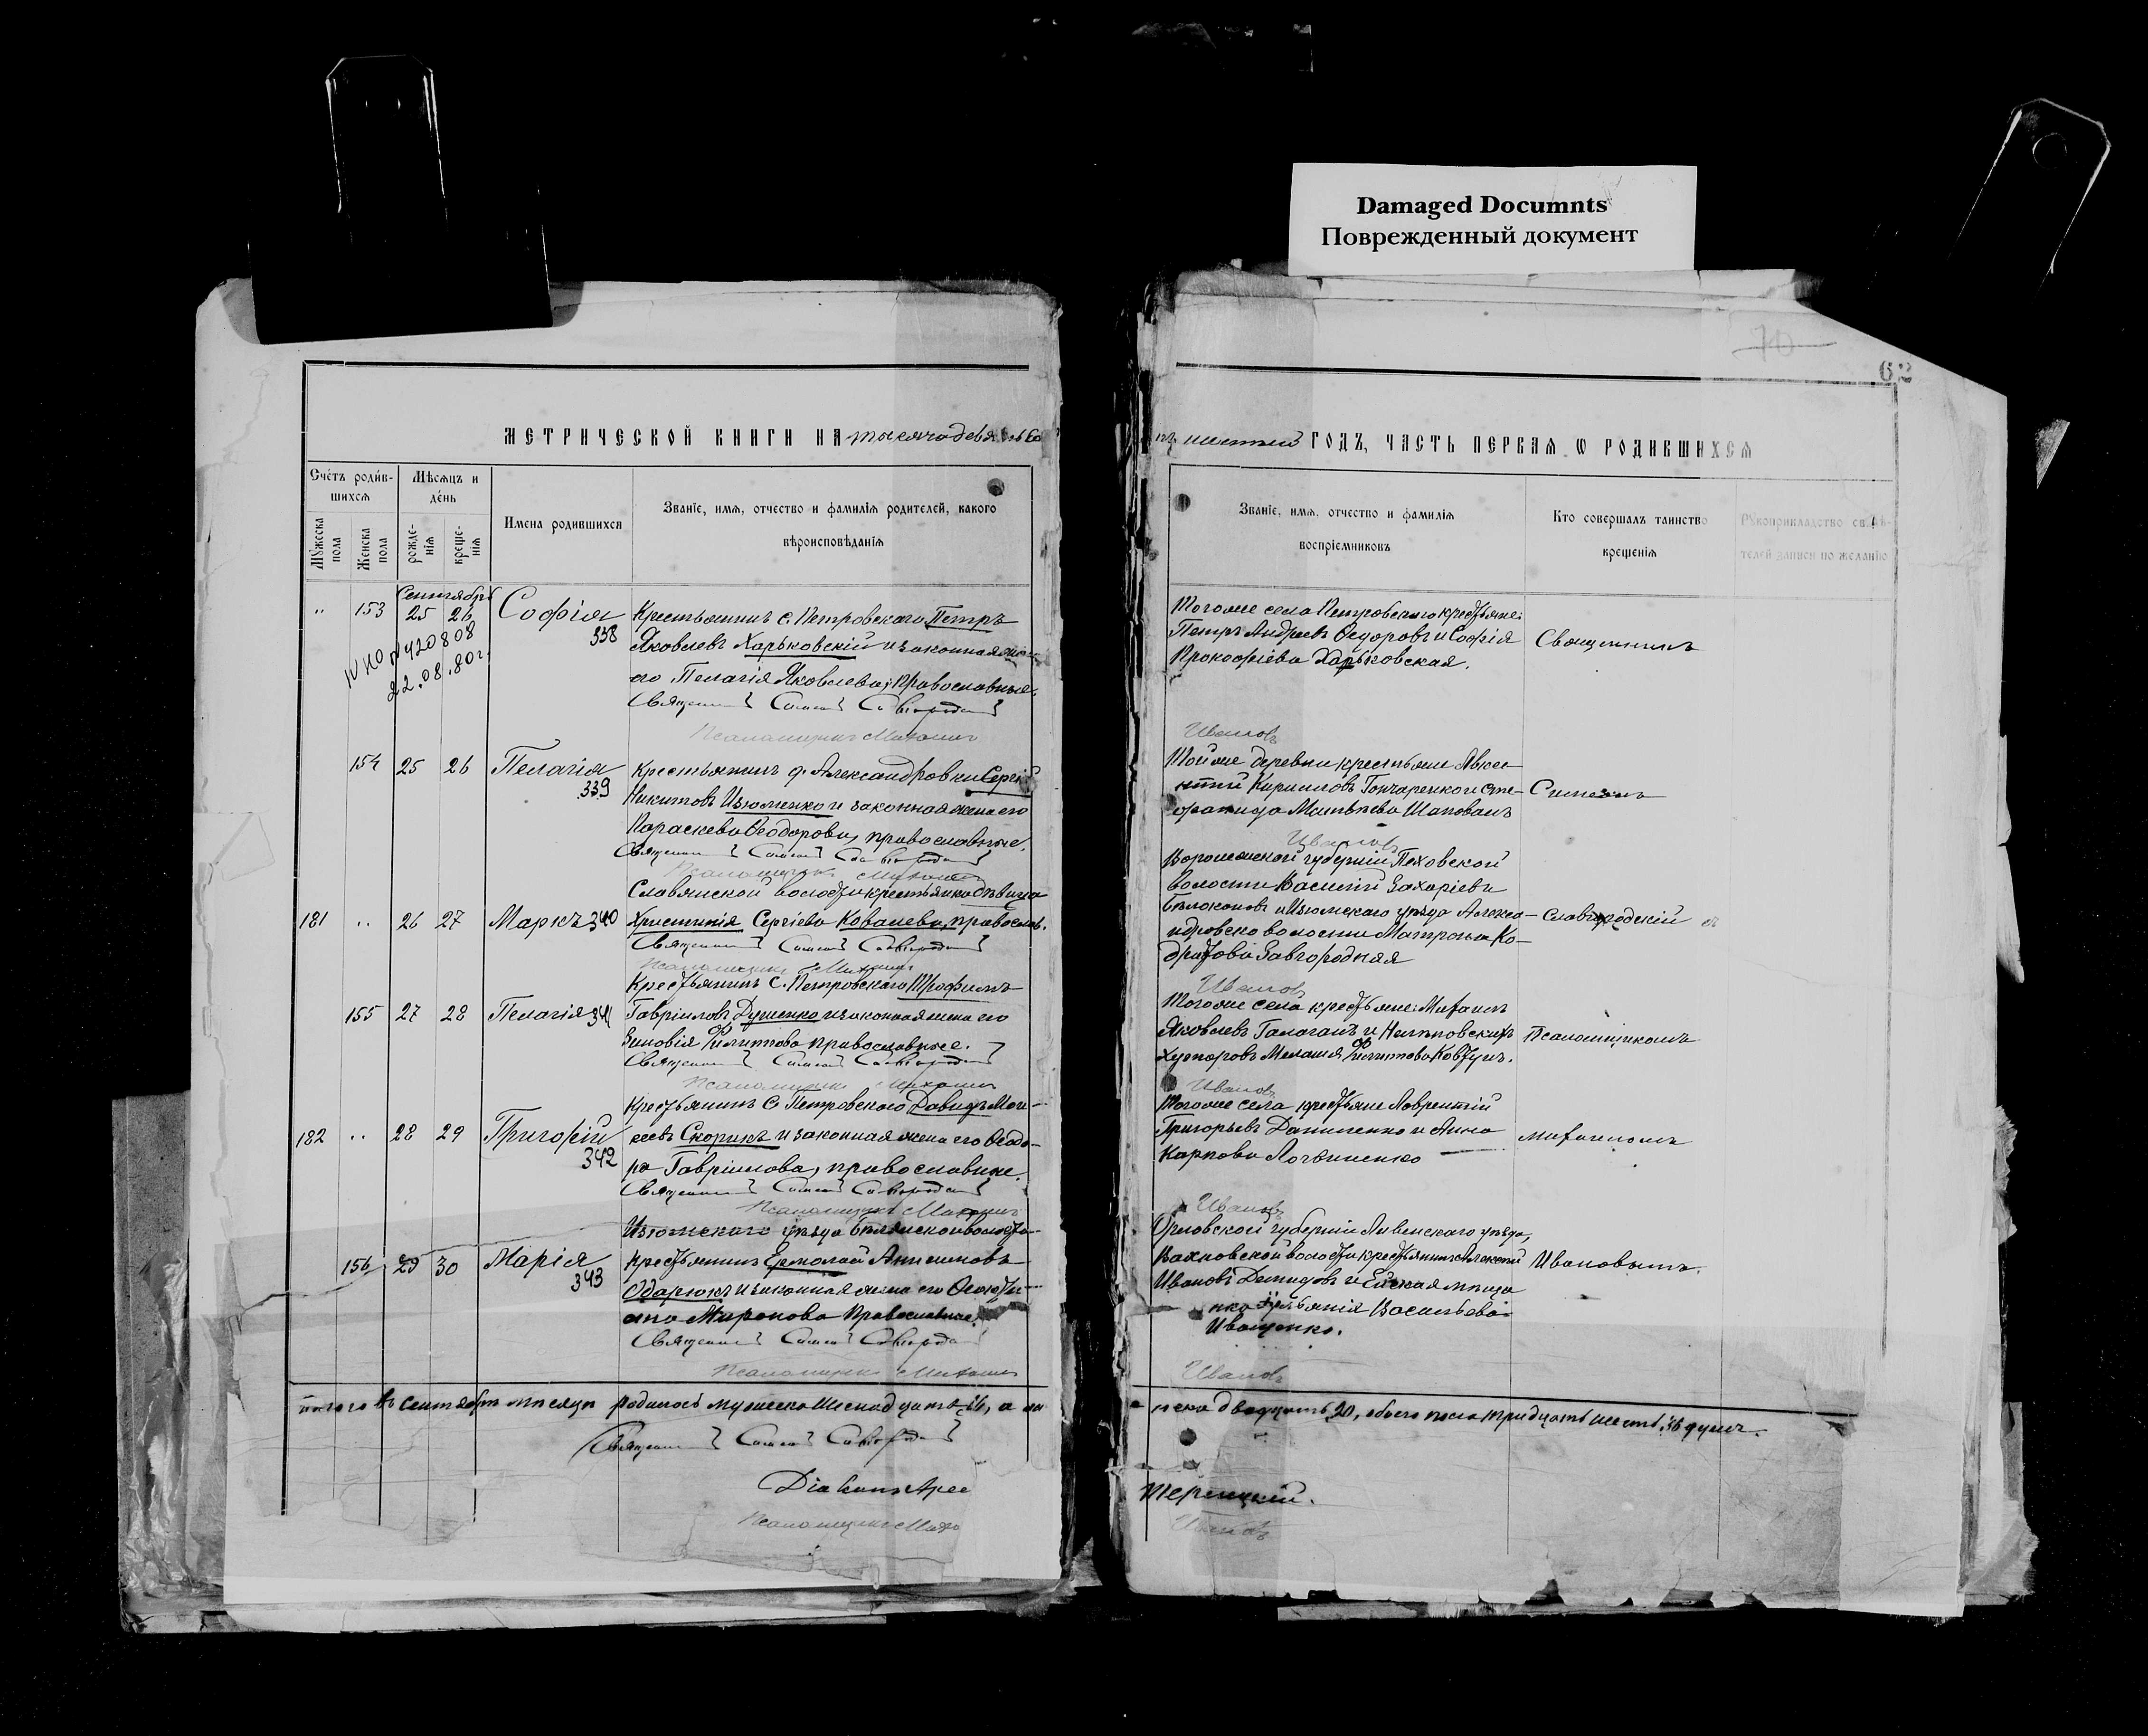 Damaged Documnts
Поврежденный документ
70
62
МЕТРИЧЕСКОЙ КНИГИ НА тысяча девятьсо
тъ шестый ГОДЪ, ЧАСТЬ ПЕРВАЯ Ѡ РОДИВШИХСЯ
Счетъ родив-
шихся
Мѣсяцъ и
день
Мужеска
пола
Женска
пола
рожде-
нія
креще-
нія
Имена родившихся
Званіе, имя, отчество и фамилія родителей, какого
вѣроисповѣданія
Званіе, имя, отчество и фамилія
воспріемниковъ
Кто совершалъ таинство
крещенія
Рукоприкладство свидѣ-
телей записи по желанію
Сентябрь
153 25 26 Софія 338
22.08.80г.
Крестьянинъ с. Петровскаго Петръ
Яковлевъ Харьковскій и законная жена
его Пелагія Яковлева, православные.
Священникъ Симеонъ
Псаломщикъ Михаилъ
Тогоже села Петровскаго крестьяне:
Петръ Андреевъ Ѳедоровъ и Софія
Прокофіева Харьковская.
Священникъ
Ивановъ
154 25 26 Пелагія 339
Крестьянинъ д. Александровки Сергій
Никитовъ Изюменко и законная жена его
Параскева Ѳеодорова, православные.
Священникъ Симеонъ
Псаломщикъ Михаилъ
Тойже деревни крестьяне Авксе-
нтій Кирилловъ Гончаренко и Сте-
фанида Матвѣева Шаповалъ
Симеонъ
Ивановъ
181 .. 26 27 Маркъ 340
Славянской волости крестьянка дѣвица
Христинія Сергіева Ковалева, православ.
Священникъ Симеонъ
Псаломщикъ Михаилъ
Воронежской губерніи
волости Василій Захаріевъ
Бѣлоконовъ и Изюмскаго уѣзда Алекса-
ндровско волости Матрона Ко-
дратова Завгородняя
Ивановъ
155 27 28 Пелагія 341
Крестьянинъ С. Петровскаго Трофимъ
Гавріиловъ Душенко и законная жена его
Зиновія Филиппова православные.
Священникъ Симеонъ
Псаломщикъ Михаилъ
Тогоже села крестьяне: Михаилъ
Яковлевъ Галаганъ и
хуторовъ Меланія Филиппова Ковтунъ.
Псаломщикомъ
Ивановъ
182 .. 28 29 Григорій 342
Крестьянинъ С. Петровскаго Давидъ Мои-
сеевъ Скорикъ и законная жена его Ѳеодо-
ра Гавріилова, православные.
Священникъ Симеонъ
Псаломщикъ Михаилъ
Тогоже села крестьяне Лаврентій
Григорьевъ Даниленко и Анна
Карпова Логвиненко
Михаиломъ
Ивановъ
156 29 30 Марія 343
Изюмскаго уѣзда волости
крестьянинъ Ермолай Анисимовъ
Одарюкъ и законная жена его Ѳеокти-
ста Миронова Православные.
Священникъ Симеонъ
Псаломщикъ Михаилъ
Орловской губерніи Ливенскаго уѣзда,
волости крестьянинъ Алексѣй
Ивановъ Демидовъ и Ейская мѣща
нка Васильева
Иващенко.
Ивановымъ.
Ивановъ
Итого въ Сентябрѣ мѣсяцѣ родилось мужеска шестнадцать 16, а же
нска двадцать 20, обоего пола тридцать шесть 36 душъ.
Священникъ Симеонъ
Діаконъ
Псаломщикъ Миха
Ивановъ